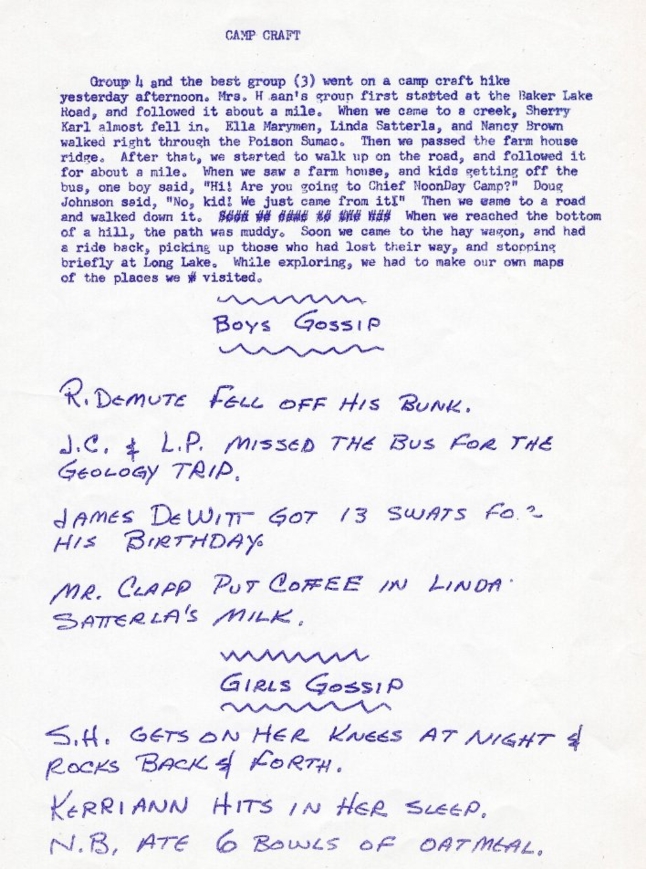 CAMP CRAFT
Group 4 and the best group (3) went on a camp craft hike
yesterday afternoon. Mrs. H aan's group first started at the Baker Lake
Road, and followed it about a mile. When we came to a creek, Sherry
Karl almost fell in. Ella Marymen, Linda Satterla, and Nancy Brown
walked right through the Poison Sumac. Then we passed the farm house
ridge. After that, we started to walk up on the road, and followed it
for about a mile. When we saw a farm house, and kids getting off the
bus, one boy said, "Hi! Are you going to Chief NoonDay Camp?" Doug
Johnson said, "No, kid! We just came from it!" Then we came to a road
and walked down it. When we reached the bottom
of a hill, the path was muddy. Soon we came to the hay wagon, and had
a ride back, picking up those who had lost their way, and stopping
briefly at Long Lake. While exploring, we had to make our own maps
of the places we visited.
BOYS GOSSIP
R. DEMUTE FELL OFF HIS BUNK.
J.C. & L.P. MISSED THE BUS FOR THE
GEOLOGY TRIP.
JAMES DEWITT GOT 13 SWATS FO
HIS BIRTHDAY.
MR. CLAPP PUT COFFEE IN LINDA
SATTERLA'S MILK.
GIRLS GOSSIP
S.H. GETS ON HER KNEES AT NIGHT &
ROCKS BACK & FORTH.
KERRIANN HITS IN HER SLEEP.
N.B. ATE 6 BOWLS OF OATMEAL.